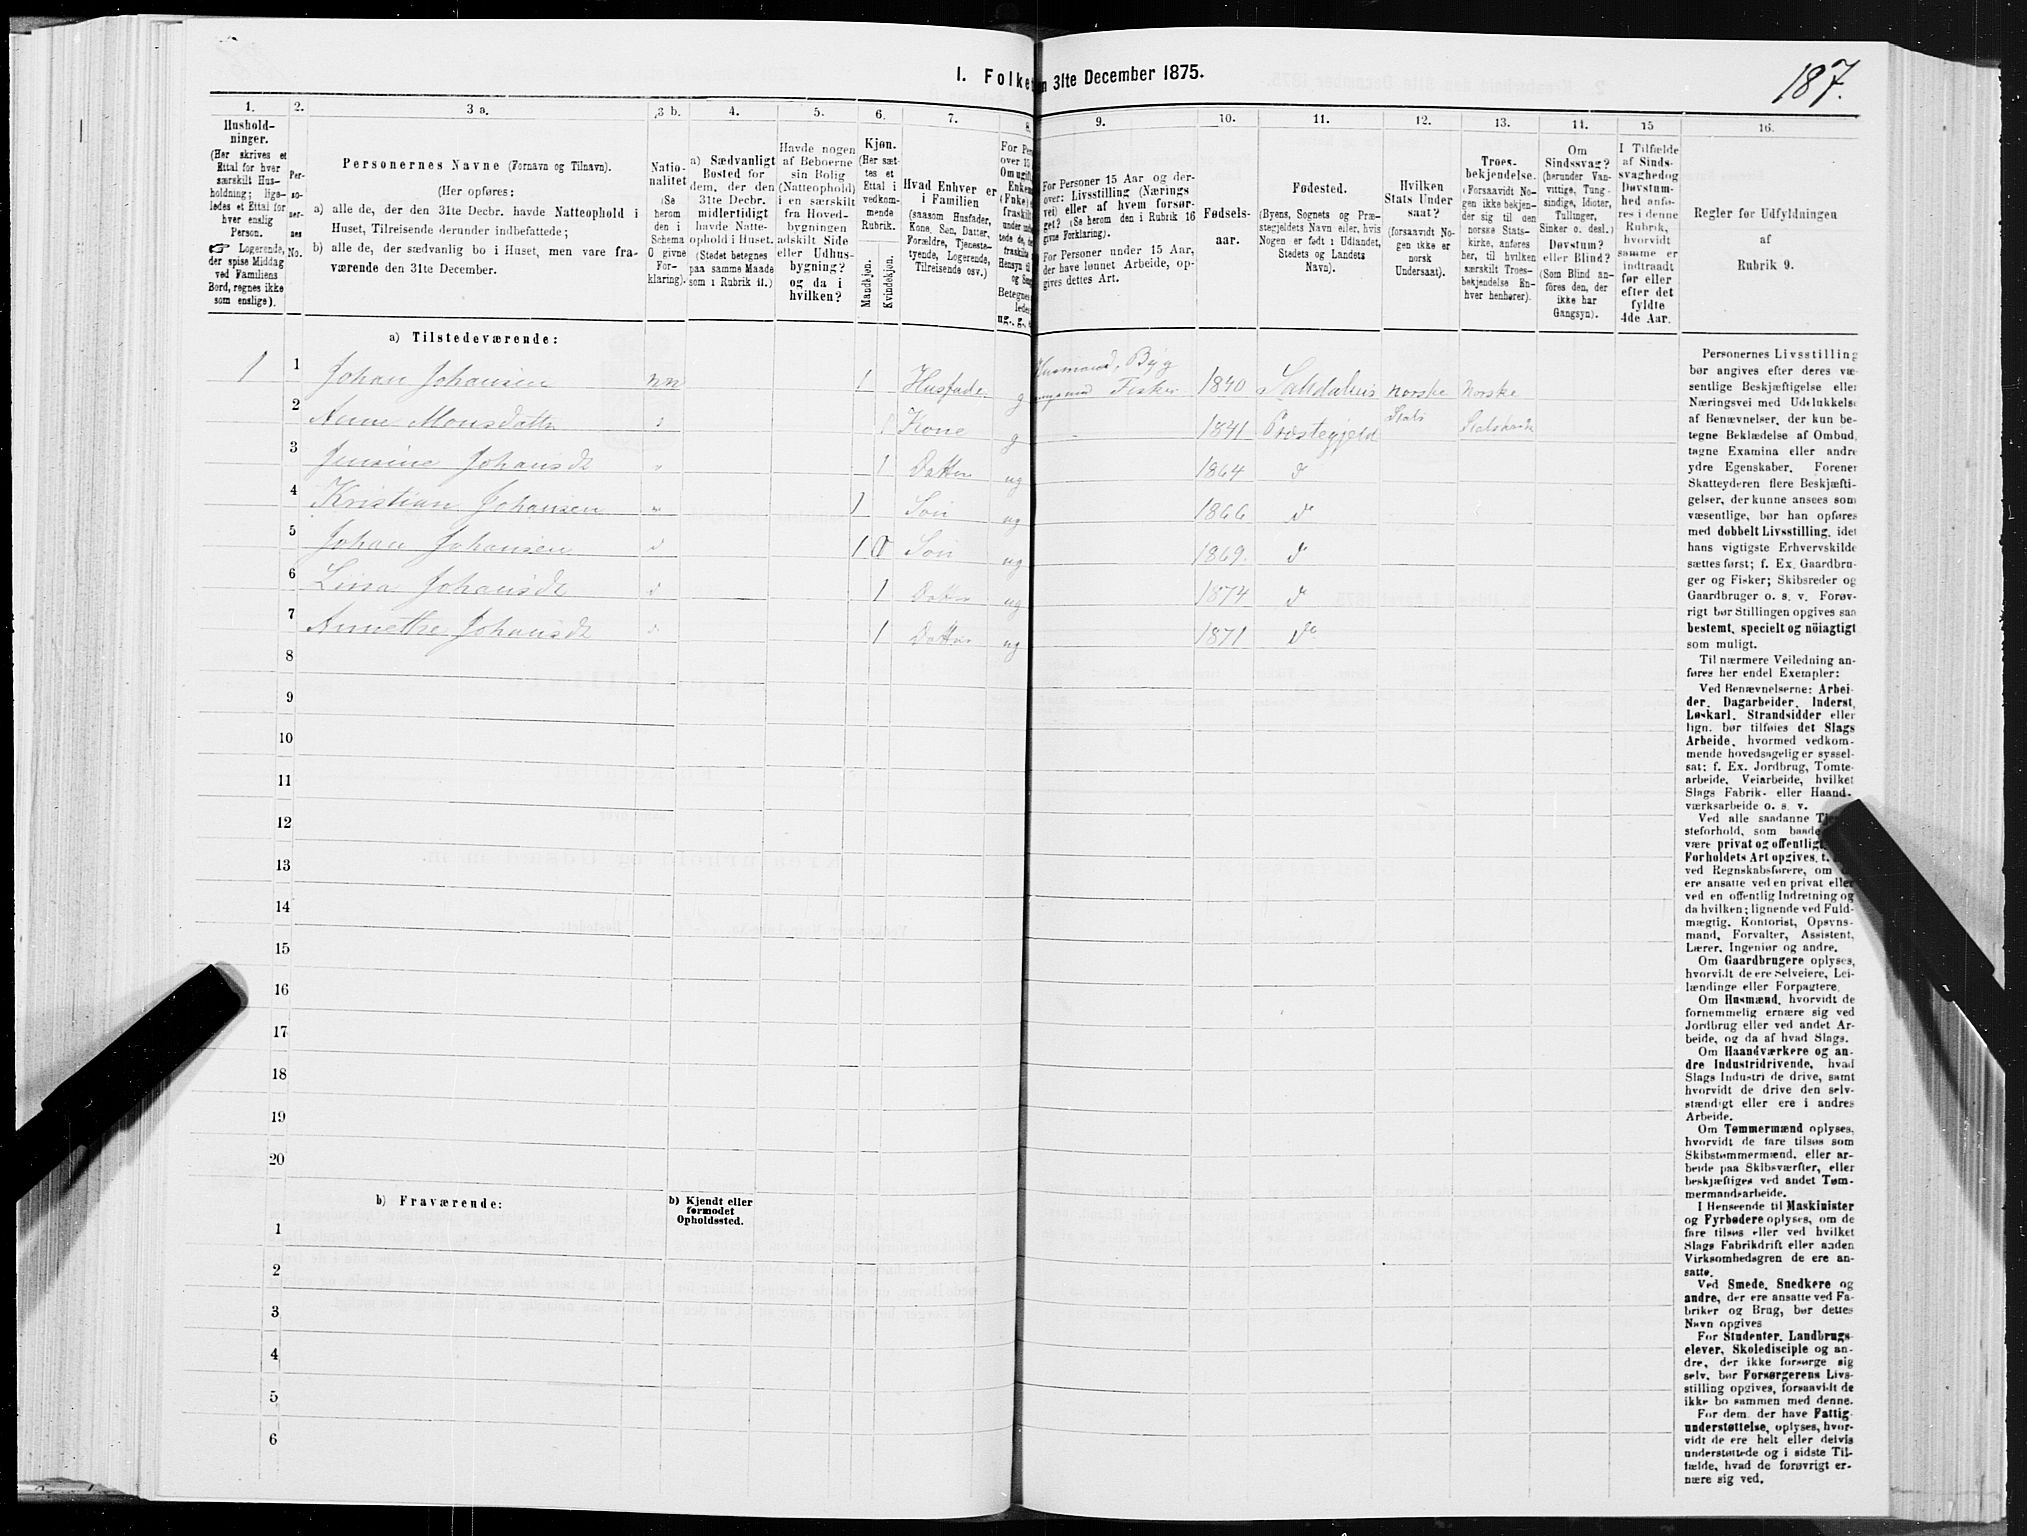 187.
I. Folke
n 31te December 1875.
1.
Hushold-
ninger.
(Her skrives et
Ettal for hver
særskilt Hus-
holdning; lige-
ledes et Ettal for
hver enslig
Person.
☞ Logerende,
der spise Middag
ved Familiens
Bord, regnes ikke
som enslige).
2.
Per-
so-
ner-
nes
No.
3 a.
Personernes Navne (Fornavn og Tilnavn).
(Her opføres:
a) alle de, der den 31te Decbr. havde Natteophold i
Huset, Tilreisende derunder indbefattede;
b) alle de, der sædvanlig bo i Huset, men vare fra-
værende den 31te December.
3 b.
Natio-
nalitet
(Se
herom
den i
Schema
O givne
For-
klaring).
4.
a) Sædvanligt
Bosted for
dem, der den
31te Decbr.
midlertidigt
havde Natte-
ophold i Huset.
(Stedet betegnes
paa samme Maade
som i Rubrik 11.)
5.
Havde nogen
af Beboerne
sin Bolig
(Natteophold)
i en særskilt
fra Hoved-
bygningen
adskilt Side
eller Udhus-
bygning?
og da i
hvilken?
6.
Kjøn.
(Her sæt-
tes et
Ettal i
vedkom-
mende
Rubrik.
Mandkjøn.
Kvindekjøn.
7.
Hvad Enhver er
i Familien
(saasom Husfader,
Kone, Søn, Datter,
Forældre, Tjeneste-
tyende, Logerende,
Tilreisende osv.)
8.
For Pe
over 15
Om ugift,
Enkem
(Fnke) e
fraskilt
Hensyn til
og Sen
Betegnes
lede
ug., g.,
9.
For Personer 15 Aar og der-
over: Livsstilling (Nærings
vei) eller af hvem forsør-
get? (Se herom den i Rubrik 16
givne Forklaring).
For Personer under 15 Aar,
der have lønnet Arbeide, op-
gives dettes Art.
10.
Fødsels-
aar.
11.
Fødested.
(Byens, Sognets og Præ-
stegjeldets Navn eller, hvis
Nogen er født i Udlandet,
Stedets og Landets
Navn).
12.
Hvilken
Stats Under
saat?
(forsaavidt No-
gen ikke er
norsk
Undersaat).
13.
Troes-
bekjendelse.
(Forsaavidt No-
gen ikke bekjen-
der sig til den
norske Stats-
kirke, anføres
her, til hvilken
særskilt Troes-
bekjendelse En-
hver henhører).
14.
Om
Sindssvag?
(herunder Van-
vittige, Tung-
sindige, Idioter,
Tullinger,
Sinker o. desl.)
Døvstum?
eller Blind?
(Som Blind an-
føres den, der
ikke har
Gangsyn).
15
I Tilfælde
af Sinds-
svaghed og
Døvstum-
hed anfø-
res i denne
Rubrik,
hvorvidt
samme er
indtraadt
før eller
efter det
fyldte
4de Aar.
16.
Regler før Udfyldningen
af
Rubrik 9.
a) Tilstedeværende:
1 1 Johan Johansen nn 1 Husfade g Husmand, Byg Fisker 1840 norske Norske
2 Anne Monsdatte 1 Kone g 1841 Præstegjeld Stats
3 Jensine Johansdt 1 Datter ug 1864 d
4 Kristian Johansen 1 Søn ug 1866 do
5 Johan Johansen d 1 Søn ug 1869. do
6 Lina Johansdt d 1 Datter ug 1874 d
7 Annethe Johansdt d 1 Datter ug 1871 do
8
9
10
11
12
13
14
15
16
17
18
19
20
b) Fraværende:
b) Kjendt eller
førmodet
Opholdssted.
1
2
3
4
5
6
Personernes Livsstilling
bør angives efter deres væ-
sentlige Beskjæftigelse eller
Næringsvei med Udelukkelse
af Benævnelser, der kun be-
tegne Beklædelse af Ombud,
tagne Examina eller andre
ydre Egenskaber. Forener
Skatteyderen flere Beskjæfti-
gelser, der kunne ansees som
væsentlige, bør han opføres
med dobbelt Livsstilling, idet
hans vigtigste Erhvervskilde
sættes først; f. Ex. Gaardbru-
ger og Fisker; Skibsreder og
Gaardbruger o. s. v. Forøv-
rigt bør Stillingen opgives saa
bestemt, specielt og nöiagtigt
som muligt.
Til nærmere Veiledning an-
føres her endel Exempler:
Ved Benævnelserne: Arbei-
der, Dagarbeider, Inderst,
Løskarl, Strandsidder eller
lign. bør tilføies det Slags
Arbeide, hvormed vedkom-
mende hovedsagelig er syssel-
sat; f. Ex. Jordbrug, Tomte-
arbeide, Veiarbeide, hvilket
Slags Fabrik- eller Haand-
værksarbeide o. s. v.
Ved alle saadanne
steforhold, som baade
være privat og offentligt,
Forholdets Art opgives, t.
ved Regnskabsførere, om
ere ansatte ved en privat eller
ved en offentlig Indretning og
da hvilken; lignende ved Fuld-
mægtig, Kontorist, Opsyns-
mand, Forvalter, Assistent,
Lærer, Ingeniør og andre.
Om Gaardbrugere oplyses,
hvorvidt de ere Selveiere, Lei-
lændinge eller Forpagtere.
Om Husmænd, hvorvidt de
fornemmelig ernære sig ved
Jordbrug eller ved andet Ar-
beide, og da af hvad Slags.
Om Haandværkere og an-
dre Industridrivende, hvad
Slags Industri de drive, samt
hvorvidt de drive den selv-
stændigt eller ere i andres
Arbeide.
Om Tømmermænd oplyses,
hvorvidt de fare tilsøs som
Skibstømmermænd, eller ar-
beide paa Skibsværfter, eller
beskjæftiges ved andet Tøm-
mermandsarbeide.
I Henseende til Maskinister
og Fyrbødere oplyses, om de
fare tilsøs eller ved hvilket
Slags Fabrikdrift eller anden
Virksomhedsgren de ere an-
satte.
Ved Smede, Snedkere og
andre, der ere ansatte ved Fa-
briker og Brug, bør dettes
Navn opgives
For Studenter, Landbrugs-
elever, Skoledisciple og an-
dre, der ikke forsørge sig
selv, bør Forsørgerens Livs-
stilling opgives, forsaavidt de
ikke bo sammen med denne.
For dem, der have Fattig-
understøttelse, oplyses, hvor-
vidt de ere helt eller delvis
understøttede og i sidste Til-
fælde, hvad de forøvrigt er-
nære sig ved.